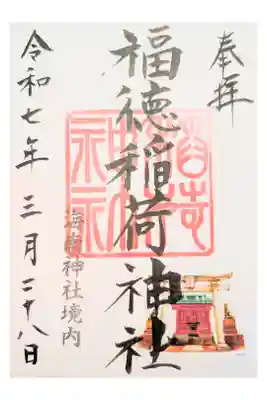 奉拝
福徳稲荷神社
海南神社境内
令和七年 三月二十八日